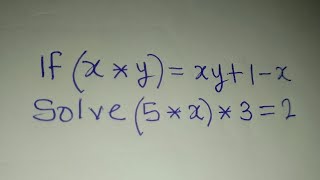 If (x * y) = xy + 1 - x
Solve (5 * x) * 3 = 2